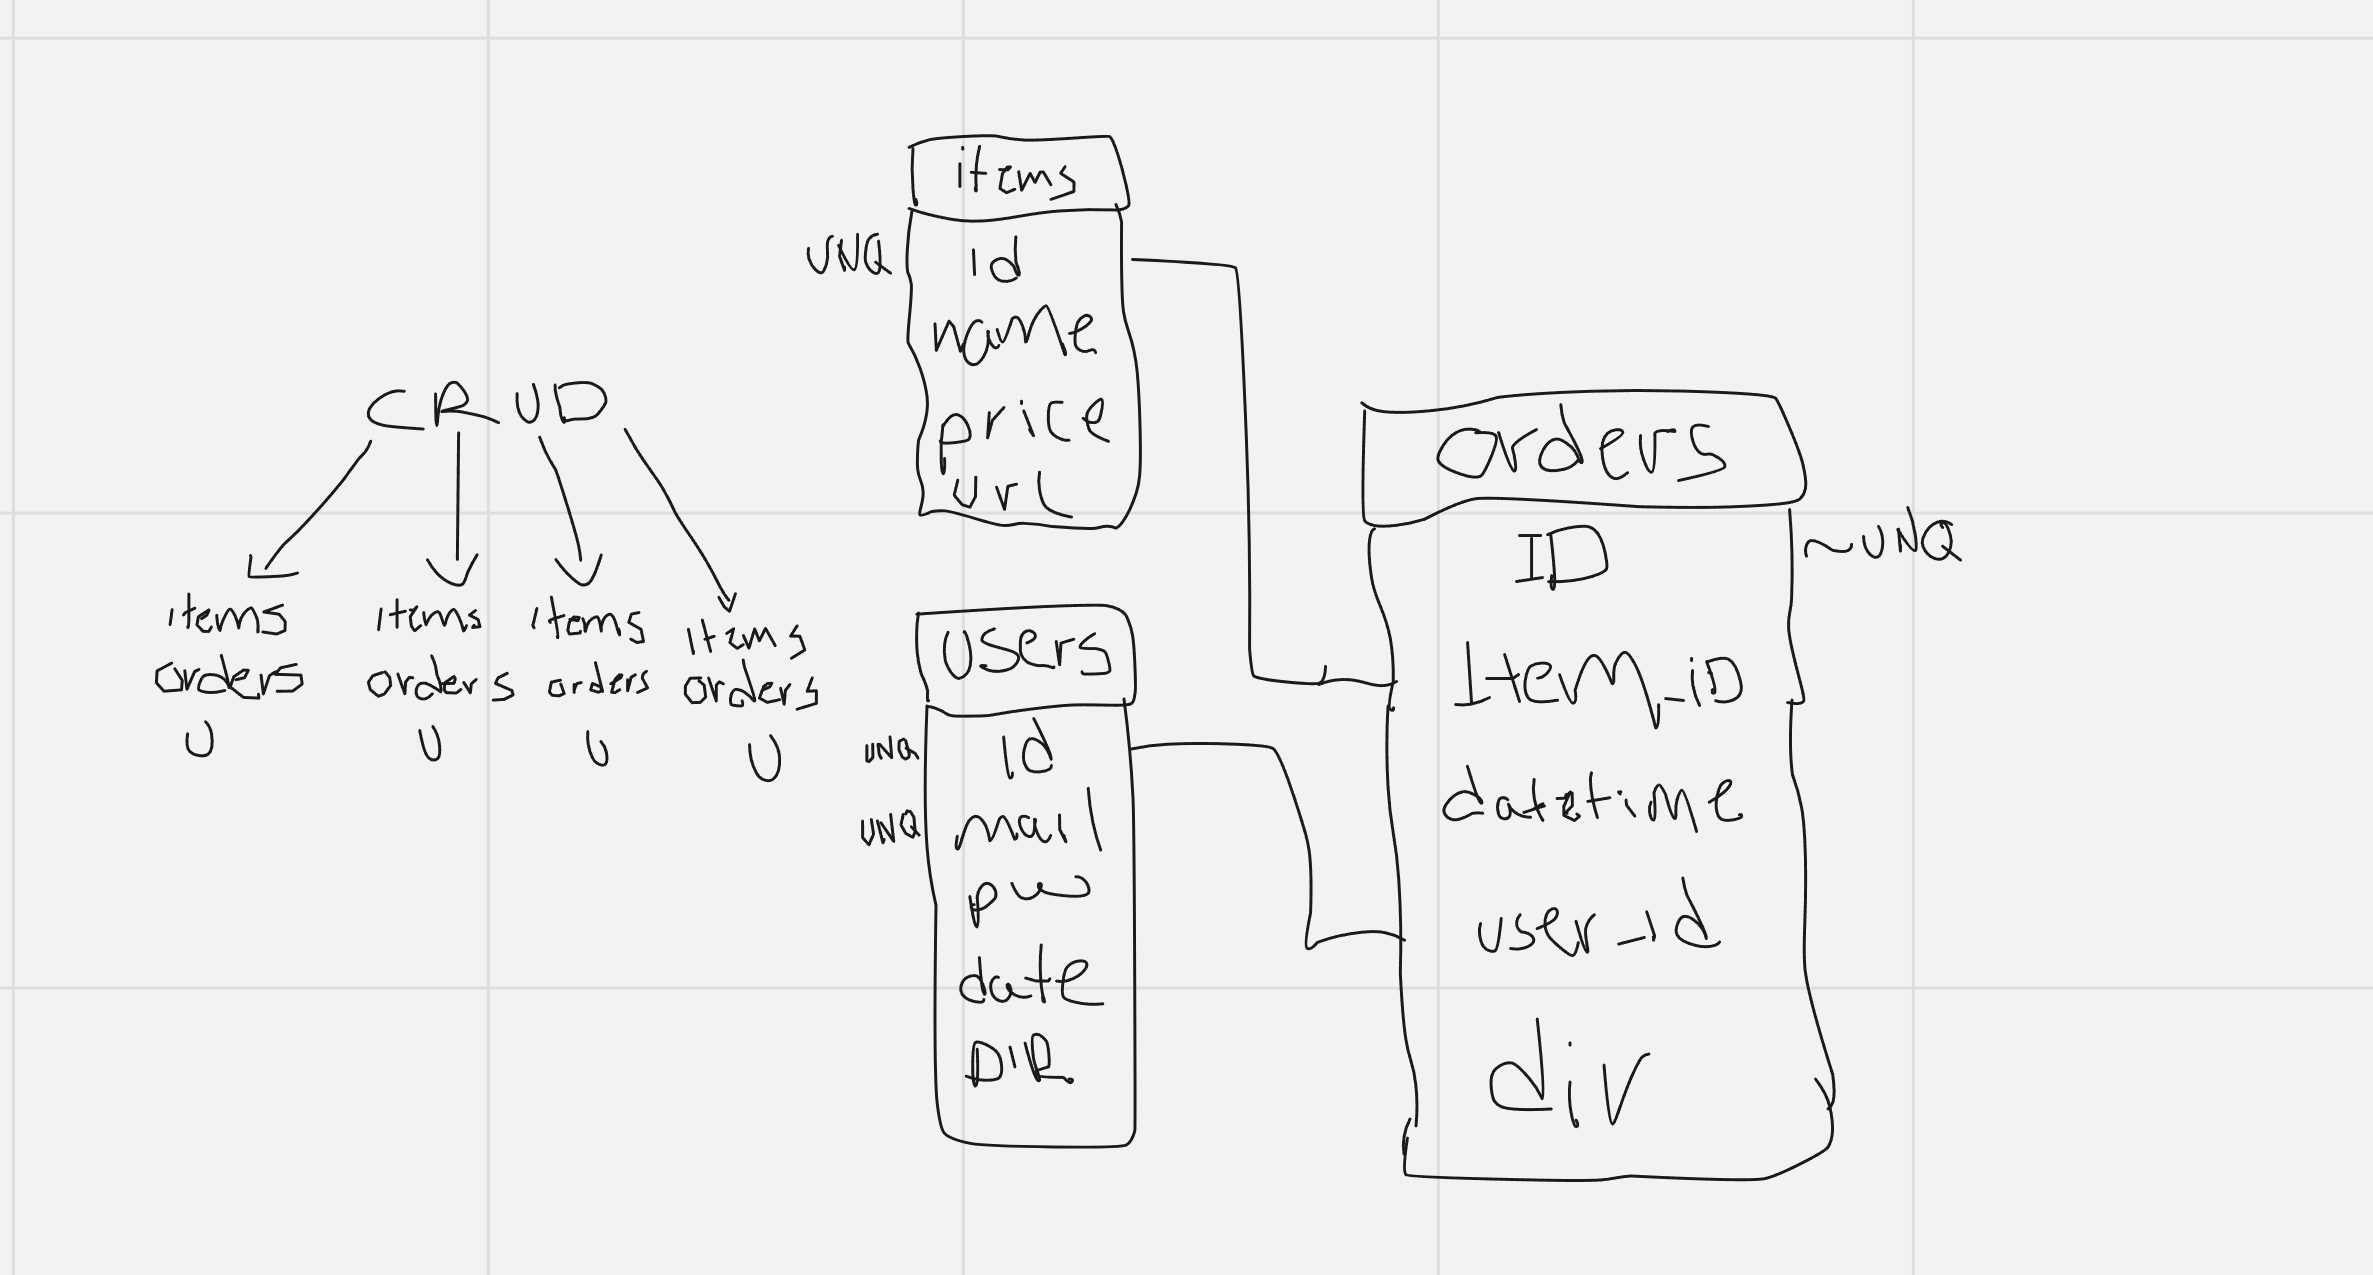 CRUD
items
orders
U
items
orders
U
items
orders
U
items
orders
U
items
UNQ id
name
price
url
users
UNQ id
UNQ mail
pw
date
DIR
orders
ID ~UNQ
Item_iD
datetime
user_id
dir